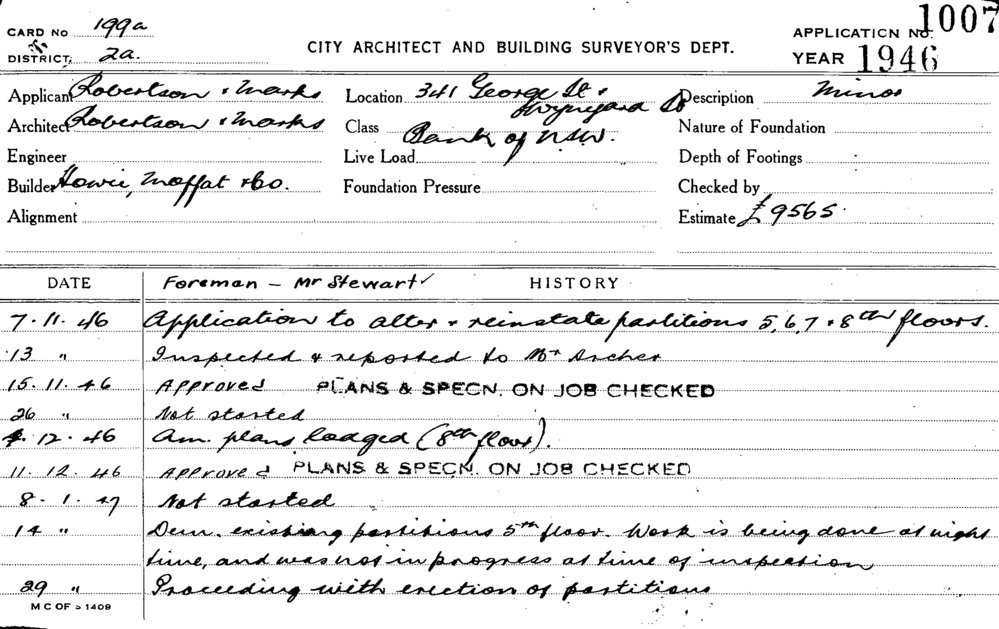 CARD No 199a
DISTRICT 2a.
CITY ARCHITECT AND BUILDING SURVEYOR'S DEPT.
APPLICATION No. 1007
YEAR 1946
Applicant Robertson & Marks
Location 341 George St &
Wynyard St
Description Minor
Architect Robertson & Marks
Class Bank of NSW.
Nature of Foundation
Engineer
Live Load
Depth of Footings
Builder Howie, Moffat & Co.
Foundation Pressure
Checked by
Alignment
Estimate £9565.
DATE Foreman - Mr Stewart HISTORY
7.11.46 Application to alter & reinstate partitions 5, 6, 7 & 8th floors.
13 " Inspected & reported to Mr Archer
15.11.46 Approved PLANS & SPECN. ON JOB CHECKED
26 " Not started
4.12.46 Am. plans lodged (8th floor).
11.12.46 Approved PLANS & SPECN. ON JOB CHECKED
8.1.47 Not started
14 " Dem. existing partitions 5th floor. Work is being done at night
time, and was not in progress at time of inspection
29 " Proceeding with erection of partitions
M C OF S 1409